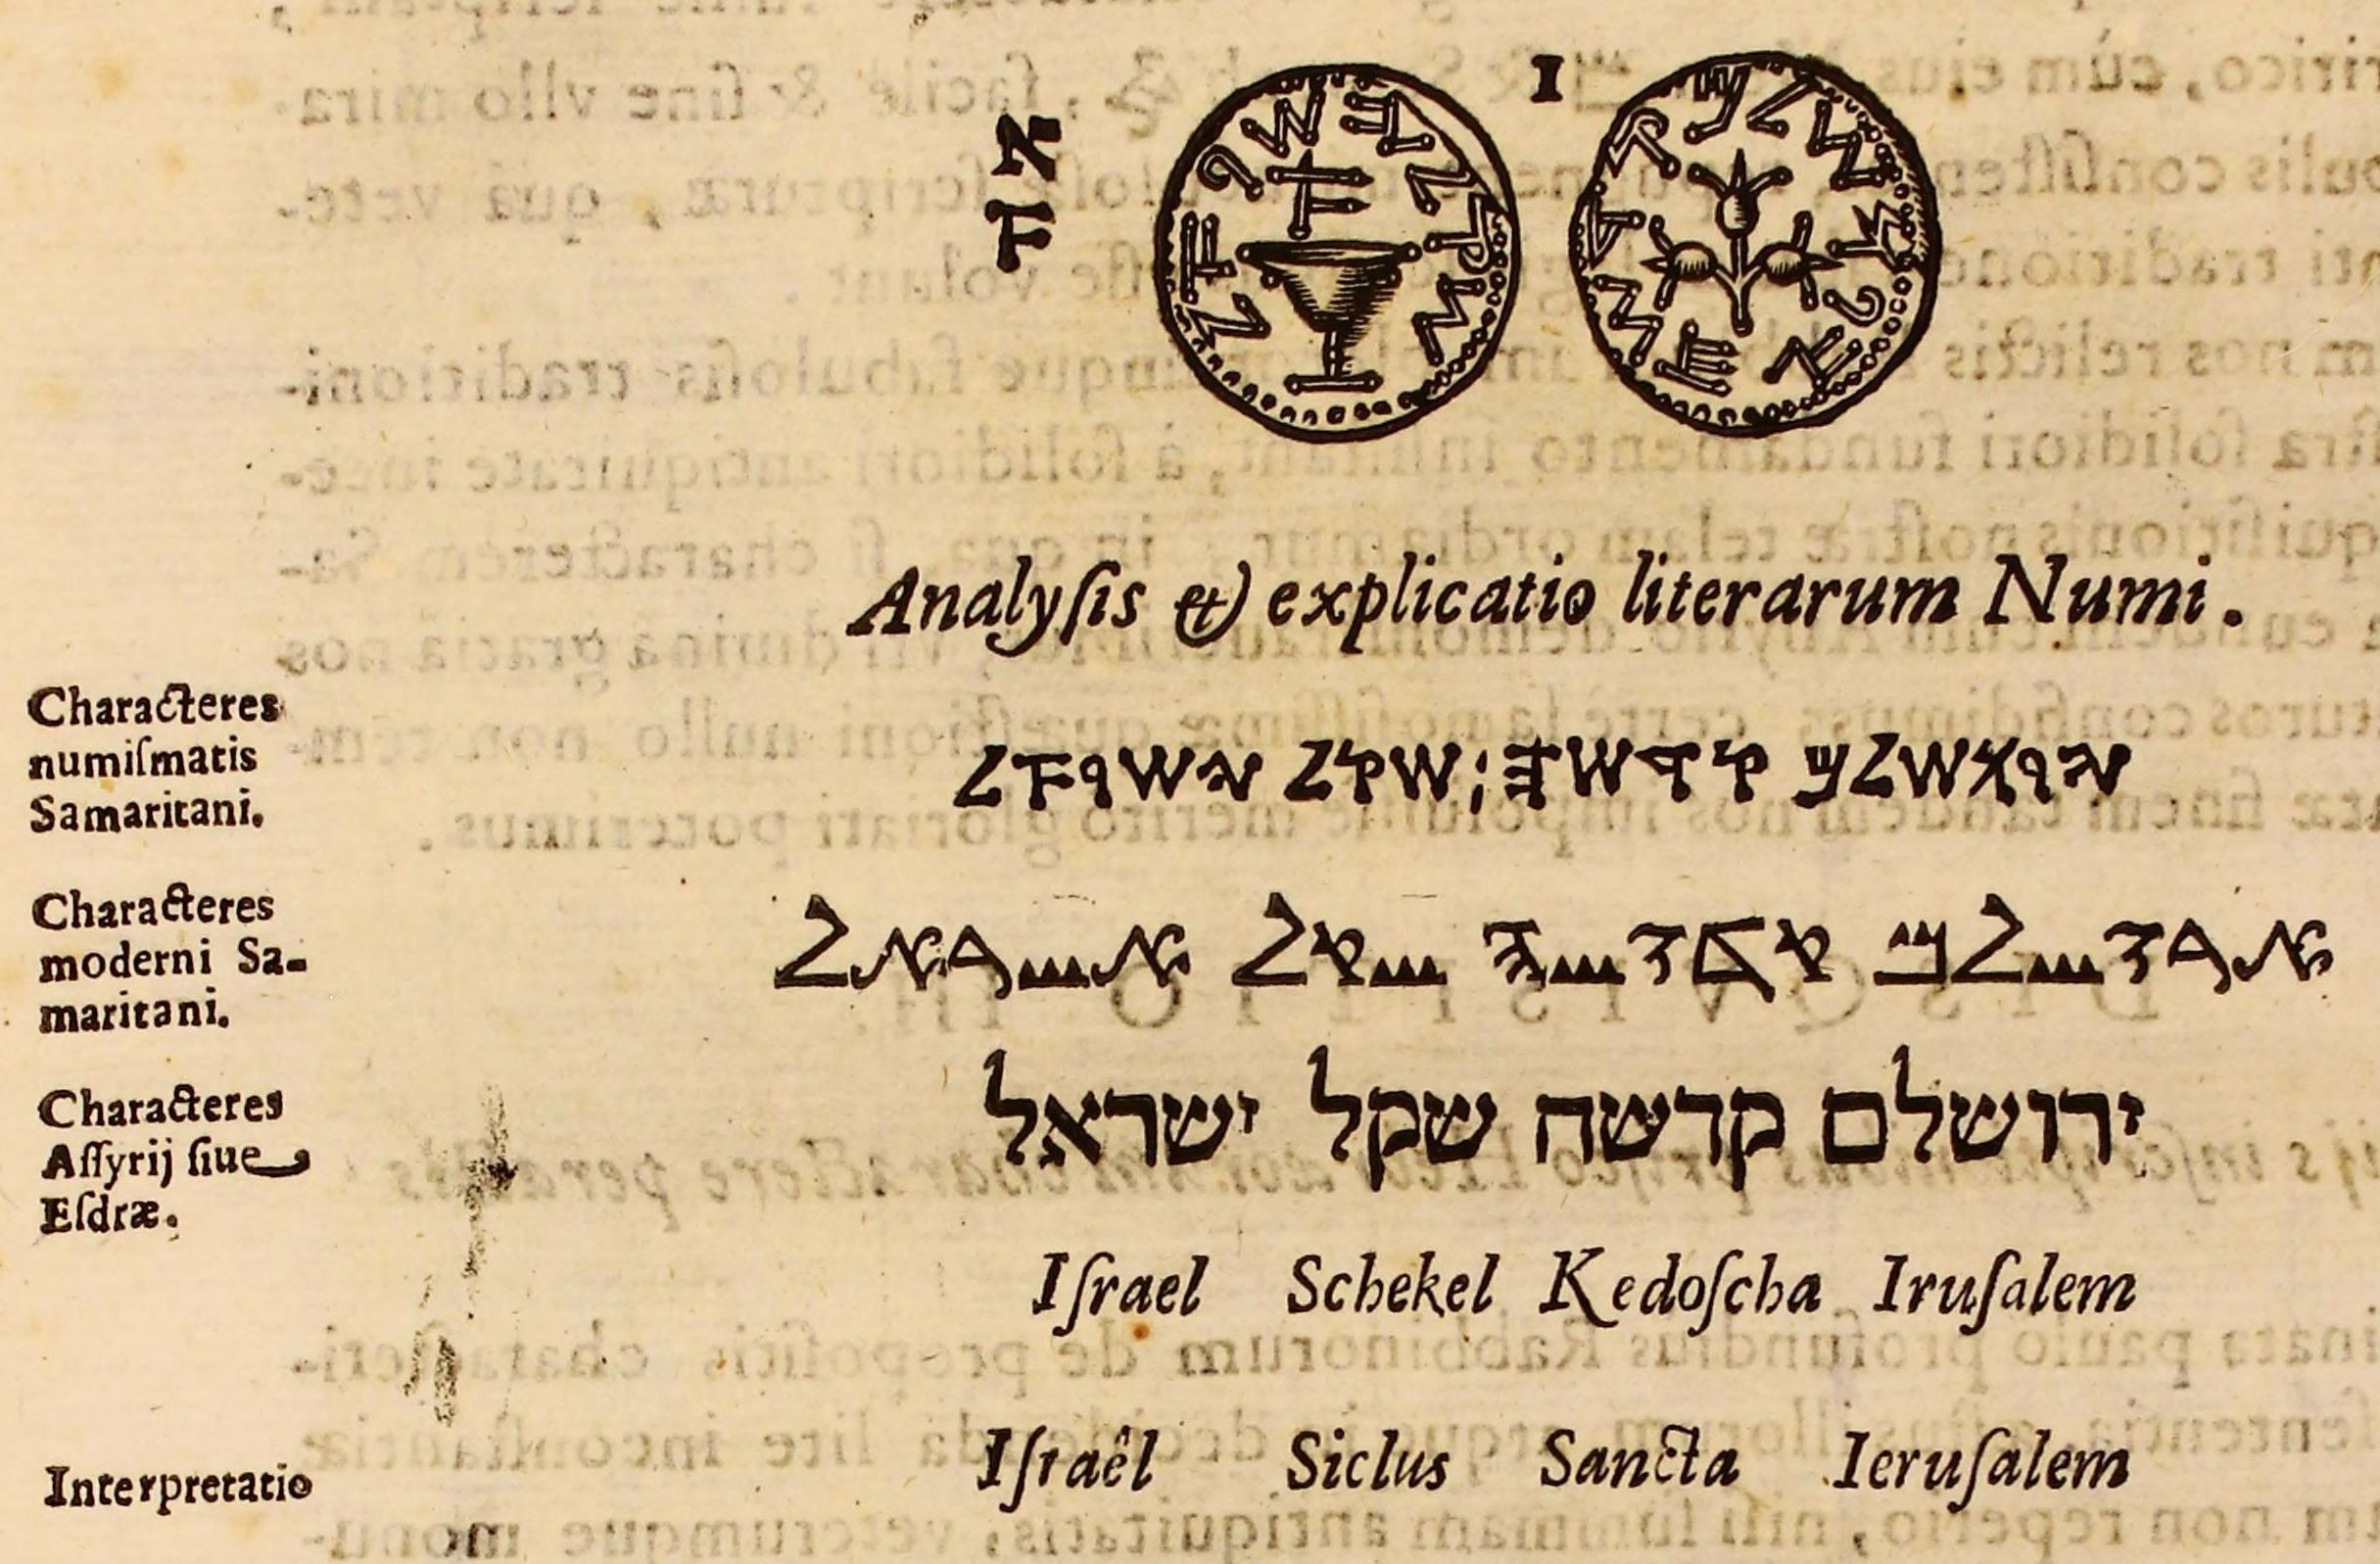 I
Analyſis & explicatio literarum Numi.
Characteres
numiſmatis
Samaritani.
𐤉𐤓𐤅𐤔𐤋𐤌 𐤒𐤃𐤔𐤄; 𐤔𐤒𐤋 𐤉𐤔𐤓𐤀𐤋
Characteres
moderni Sa-
maritani.
Characteres
Aſſyrij ſiue
Eſdræ.
ירושלם קדשה שקל ישראל
Iſrael Schekel Kedoſcha Iruſalem
Interpretatio
Iſraêl Siclus Sancta Ieruſalem